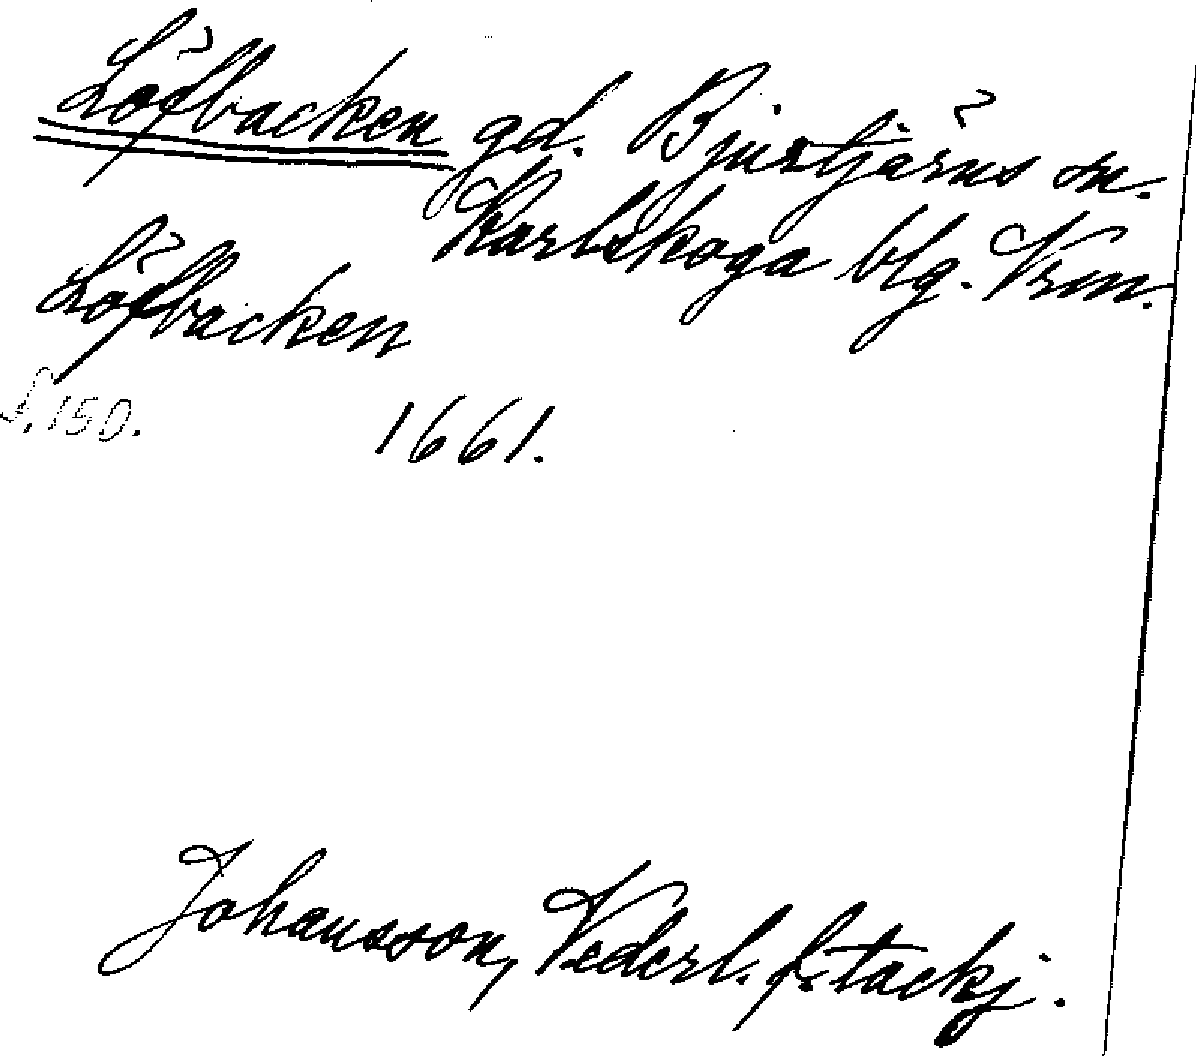 Löfbacken gd. Bjurtjärns sn.
Karlskoga blg. Vrm.
Löfbacken
S. 150.
1661.
Johansson, Vederl. f. tackj.